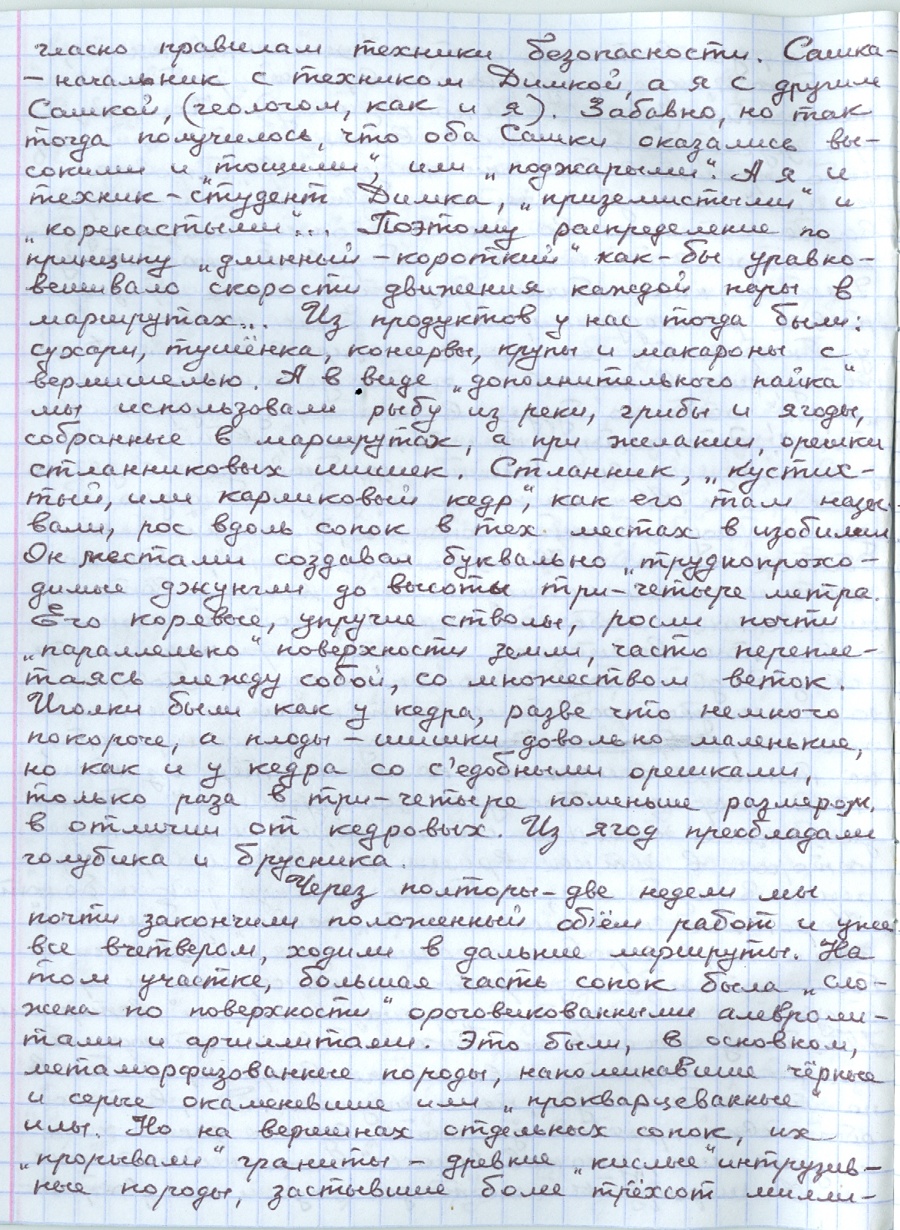 гласно правилам техники безопасности. Сашка-
-начальник с техником Димкой, а я с другим
Сашкой, (геологом, как и я). Забавно, но так
тогда получилось, что оба Сашки оказались вы-
сокими и „тощими", или „поджарыми". А я и
техник-студент Димка, „приземистыми" и
„коренастыми"... Поэтому распределение по
принципу „длинный-короткий" как-бы уравно-
вешивало скорости движения каждой пары в
маршрутах... Из продуктов у нас тогда были:
сухари, тушёнка, консервы, крупы и макароны с
вермишелью. А в виде „дополнительного пайка"
мы использовали рыбу из реки, грибы и ягоды,
собранные в маршрутах, а при желании, орешки
стланниковых шишек. Стланник, „кустис-
тый, или карликовый кедр", как его там назы-
вали, рос вдоль сопок в тех местах в изобилии
Он местами создавал буквально „труднопрохо-
димые джунгли до высоты три-четыре метра.
Его корявые, упругие стволы, росли почти
„параллельно" поверхности земли, часто перепле-
таясь между собой, со множеством веток.
Иголки были как у кедра, разве что немного
покороче, а плоды-шишки довольно маленькие,
но как и у кедра со с'едобными орешками,
только раза в три-четыре поменьше размером,
в отличии от кедровых. Из ягод преобладали
голубика и брусника.
Через полторы-две недели мы
почти закончили положенный объём работ и уже
все вчетвером, ходили в дальние маршруты. На
том участке, большая часть сопок была „сло-
жена по поверхности" ороговикованными алевроли-
тами и аргиллитами. Это были, в основном,
метаморфизованные породы, напоминавшие чёрные
и серые окаменевшие или „прокварцеванные"
илы. Но на вершинах отдельных сопок, их
„прорывали" граниты - древние „кислые" интрузив-
ные породы, застывшие более трёхсот милли-